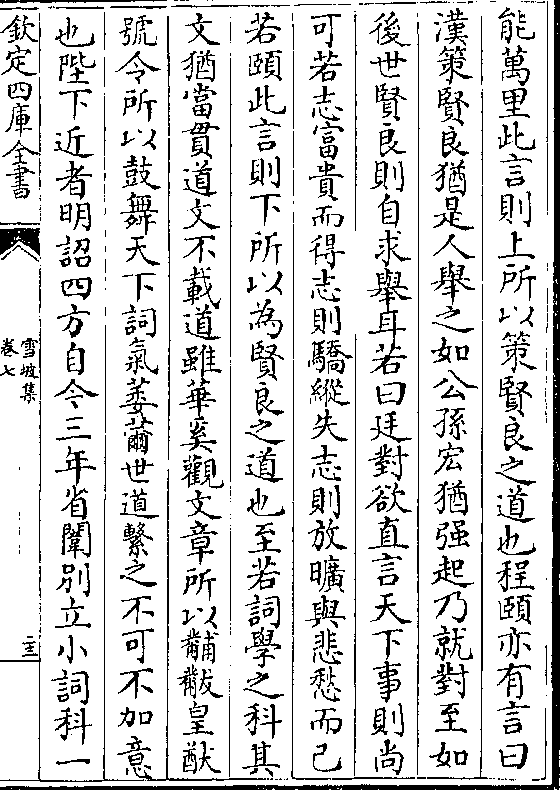 能萬里此言則上所以策賢良之道也程頤亦有言曰
漢策賢良猶是人舉之如公孫宏猶强起乃就對至如
後世賢良則自求舉耳若曰廷對欲直言天下事則尚
可若志富貴而得志則驕縱失志則放曠與悲愁而已
若頤此言則下所以為賢良之道也至若詞學之科其
文猶當貫道文不載道雖華奚觀文章所以黼黻皇猷
號令所以鼓舞天下詞氣萎薾世道繫之不可不加意
也陛下近者明詔四方自今三年省闈别立小詞科一
欽定四庫全書
雪坡集
卷七
二十三